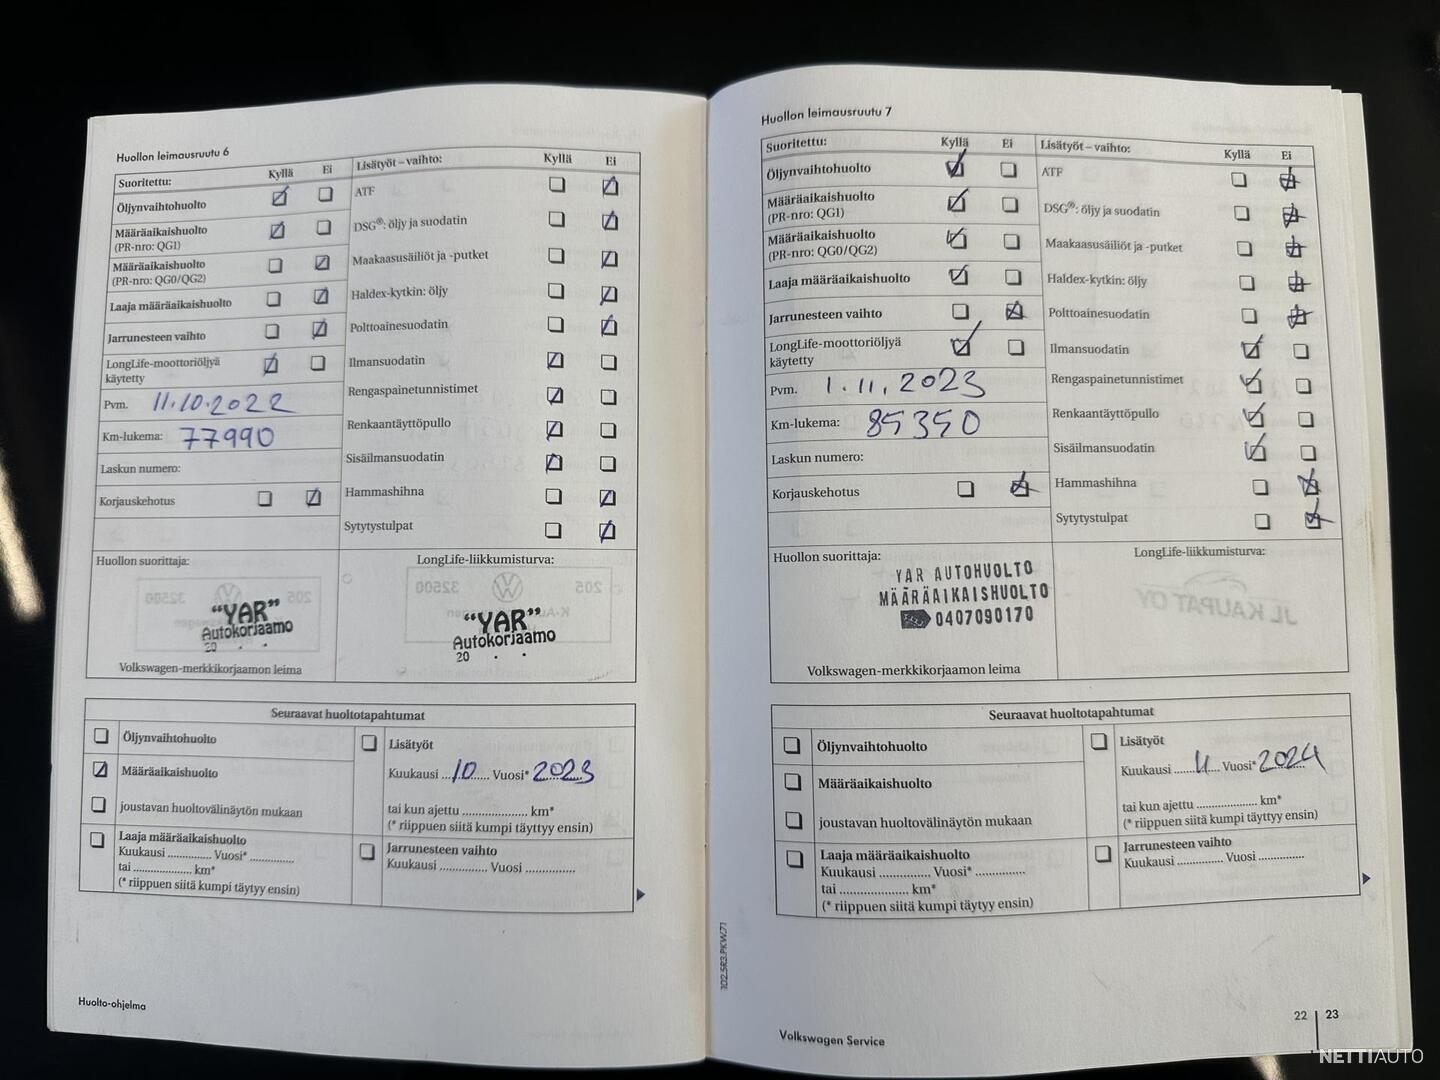 Huollon leimausruutu 6
Suoritettu: Kyllä Ei Lisätyöt – vaihto: Kyllä Ei
Öljynvaihtohuolto
ATF
Määräaikaishuolto
(PR-nro: QG1)
DSG®: öljy ja suodatin
Määräaikaishuolto
(PR-nro: QG0/QG2)
Maakaasusäiliöt ja -putket
Laaja määräaikaishuolto
Haldex-kytkin: öljy
Jarrunesteen vaihto
Polttoainesuodatin
LongLife-moottoriöljyä
käytetty
Ilmansuodatin
Pvm. 11.10.2022
Rengaspainetunnistimet
Km-lukema: 77990
Renkaantäyttöpullo
Laskun numero:
Sisäilmansuodatin
Korjauskehotus
Hammashihna
Sytytystulpat
Huollon suorittaja:
LongLife-liikkumisturva:
"YAR"
Autokorjaamo
20 . .
"YAR"
Autokorjaamo
20 . .
Volkswagen-merkkikorjaamon leima
Seuraavat huoltotapahtumat
Öljynvaihtohuolto
Määräaikaishuolto
joustavan huoltovälinäytön mukaan
Lisätyöt
Kuukausi ...10...... Vuosi* 2023
tai kun ajettu ..................... km*
(* riippuen siitä kumpi täyttyy ensin)
Laaja määräaikaishuolto
Kuukausi .............. Vuosi* ..............
tai .................... km*
(* riippuen siitä kumpi täytyy ensin)
Jarrunesteen vaihto
Kuukausi ............... Vuosi ...............
Huolto-ohjelma
Huollon leimausruutu 7
Suoritettu: Kyllä Ei Lisätyöt – vaihto: Kyllä Ei
Öljynvaihtohuolto
ATF
Määräaikaishuolto
(PR-nro: QG1)
DSG®: öljy ja suodatin
Määräaikaishuolto
(PR-nro: QG0/QG2)
Maakaasusäiliöt ja -putket
Laaja määräaikaishuolto
Haldex-kytkin: öljy
Jarrunesteen vaihto
Polttoainesuodatin
LongLife-moottoriöljyä
käytetty
Ilmansuodatin
Pvm. 1.11.2023
Rengaspainetunnistimet
Km-lukema: 85350
Renkaantäyttöpullo
Laskun numero:
Sisäilmansuodatin
Korjauskehotus
Hammashihna
Sytytystulpat
Huollon suorittaja:
LongLife-liikkumisturva:
YAR AUTOHUOLTO
MÄÄRÄAIKAISHUOLTO
0407090170
Volkswagen-merkkikorjaamon leima
Seuraavat huoltotapahtumat
Öljynvaihtohuolto
Määräaikaishuolto
joustavan huoltovälinäytön mukaan
Lisätyöt
Kuukausi .......11... Vuosi* 2024
tai kun ajettu ................... km*
(* riippuen siitä kumpi täyttyy ensin)
Laaja määräaikaishuolto
Kuukausi ................ Vuosi* ...............
tai ..................... km*
(* riippuen siitä kumpi täytyy ensin)
Jarrunesteen vaihto
Kuukausi .............. Vuosi ..............
102.5R3.PKW.71
22 | 23
Volkswagen Service
NETTIAUTO